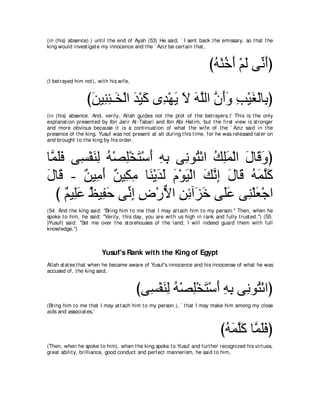 (in (his) absence).) until the end of Ayah (53) He said, ` I sent back the emissary, so that the
king would investigate my innocence and the ` Aziz be certain that,
(أَنِّى لَمْ أَخُنْهُ)
(I betrayed him not), with his wife,
(بِالْغَيْبِ وَأَنَّ اللَّهَ لاَ يَهْدِى كَيْدَ الْخَـئِنِينَ)
(in (his) absence. And, verily, Allah guides not the plot of the betrayers.)' This is the only
explanation presented by Ibn Jarir At-Tabari and Ibn Abi Hatim, but the first view is stronger
and more obvious because it is a continuation of what the wife of the ` Aziz said in the
presence of the king. Yusuf was not present at all during this time, for he was released later on
and brought to the king by his order.
(وَقَالَ الْمَلِكُ ائْتُونِى بِهِ أَسْتَخْلِصْهُ لِنَفْسِى فَلَمَّا
كَلَّمَهُ قَالَ إِنَّكَ الْيَوْمَ لَدَيْنَا مِكِينٌ أَمِينٌ - قَالَ
اجْعَلْنِى عَلَى خَزَآئِنِ الاٌّرْضِ إِنِّى حَفِيظٌ عَلِيمٌ )
(54. And the king said: "Bring him to me that I may attach him to my person." Then, when he
spoke to him, he said: "Verily, this day, you are with us high in rank and fully trusted.") (55.
(Yusuf) said: "Set me over the storehouses of the land; I will indeed guard them with full
knowledge.")
Yusuf's Rank with the King of Egypt
Allah states that when he became aware of Yusuf's innocence and his innocense of what he was
accused of, the king said,
(ائْتُونِى بِهِ أَسْتَخْلِصْهُ لِنَفْسِى)
(Bring him to me that I may attach him to my person.), ` that I may make him among my close
aids and associates.'
(فَلَمَّا كَلَّمَهُ)
(Then, when he spoke to him), when the king spoke to Yusuf and further recognized his virtues,
great ability, brilliance, good conduct and perfect mannerism, he said to him,